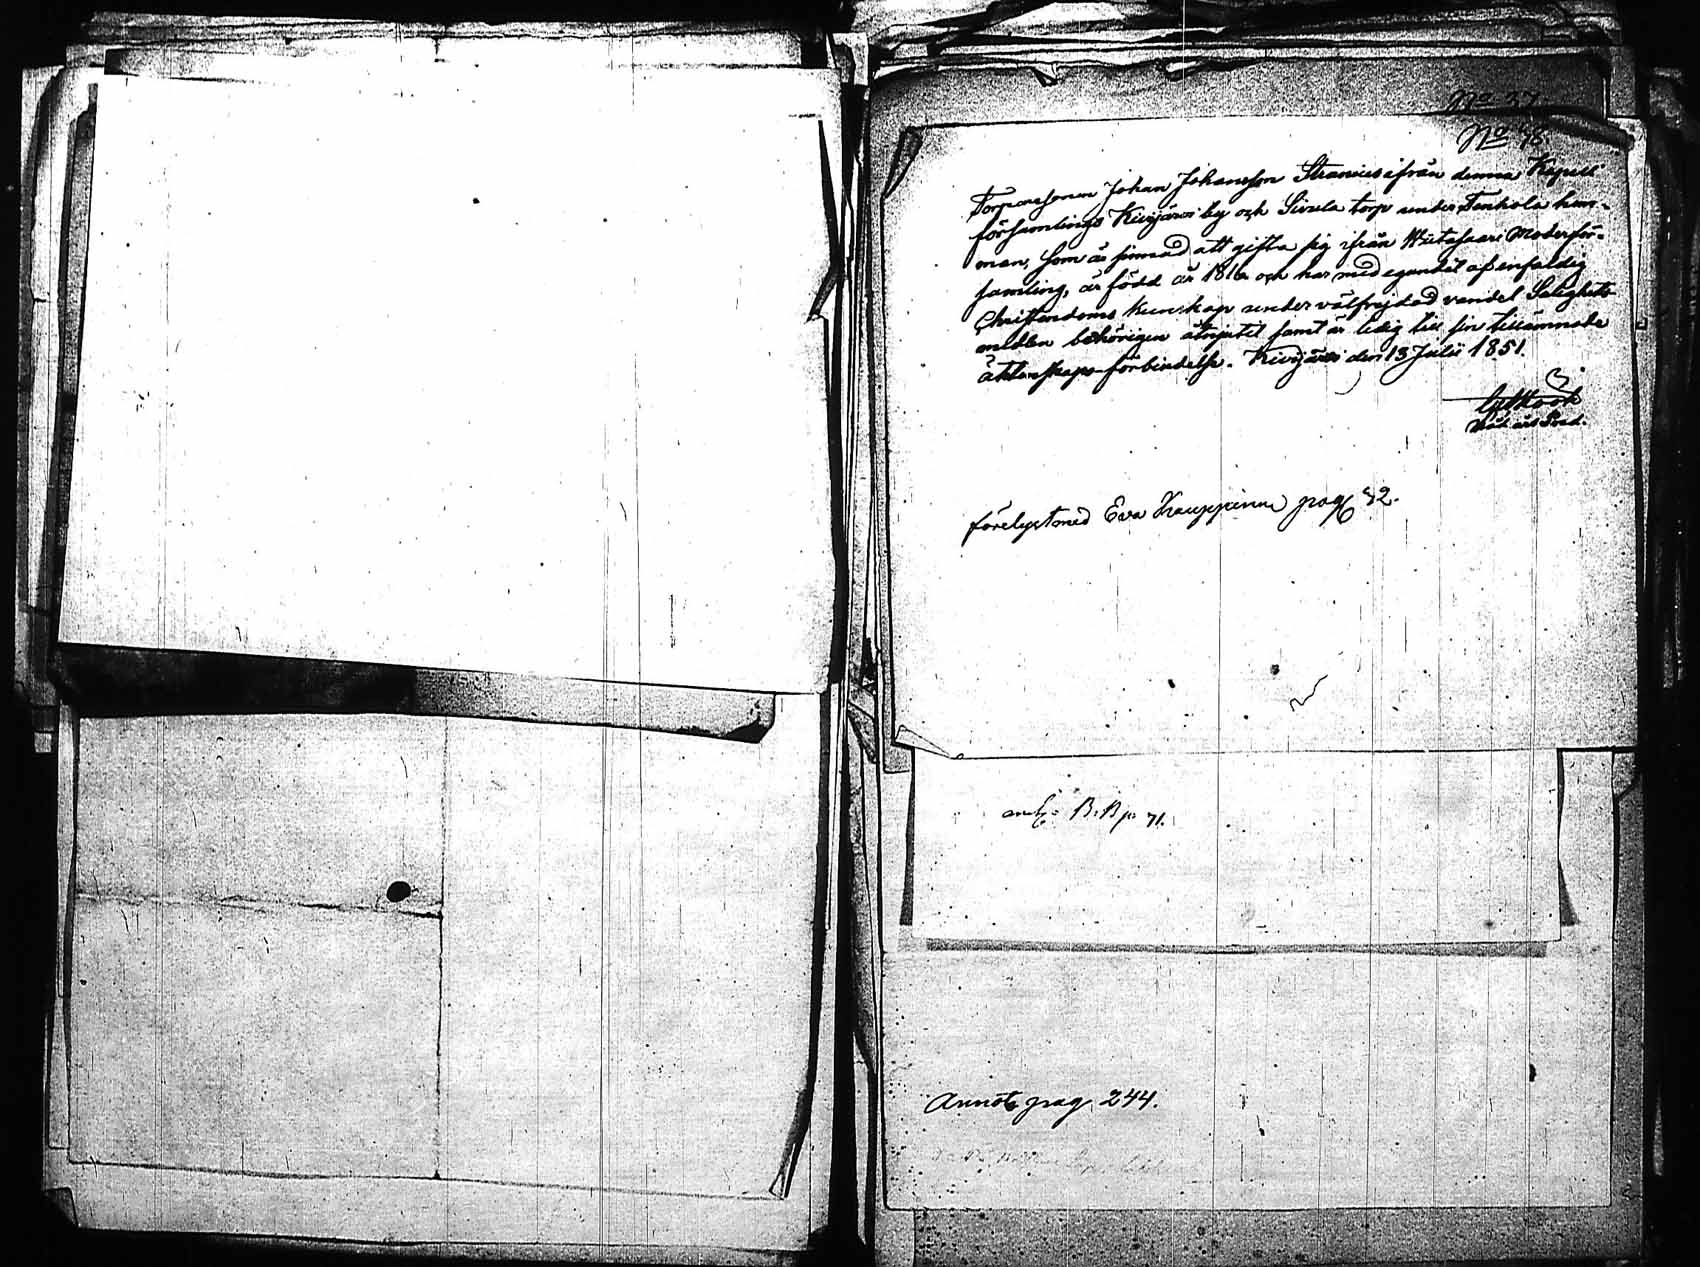 No 37.
No 78.
Torparesonen Johan Johansson Stranius ifrån denna Kapell
församlings Kivijärvi by och Sivula torp under Tenhola hem-
man, som är sinnad att gifta sig ifrån Wiitasaari Moderför-
samling, är född år och har med egandet af enfaldig
Christendoms kunskap under välfrejdad vandel Salighets-
medlen behörigen åtnjutit samt är ledig till sin tillämnade
äktenskaps-förbindelse. Kivijärvi den 13 Julii 1851.
förelyst med Eva Kauppinen pag 32.
B.B. p. 71.
Annot. pag 244.